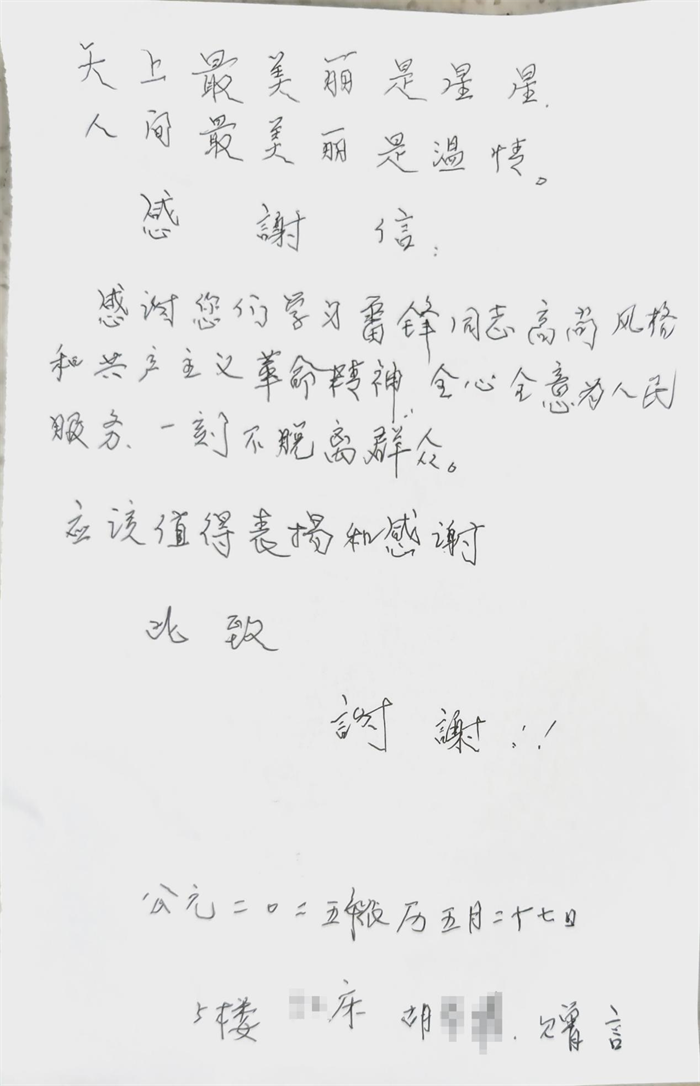 天上最美丽是星星.
人间最美丽是温情。
感謝信:
感谢您们学习雷锋同志高尚风格
和共产主义革命精神,全心全意为人民
服务、一刻不脱离群众。
应该值得表揚和感谢
此致
謝謝!!
公元二〇二五年农历五月二十七日
5楼 床 胡 .赠言